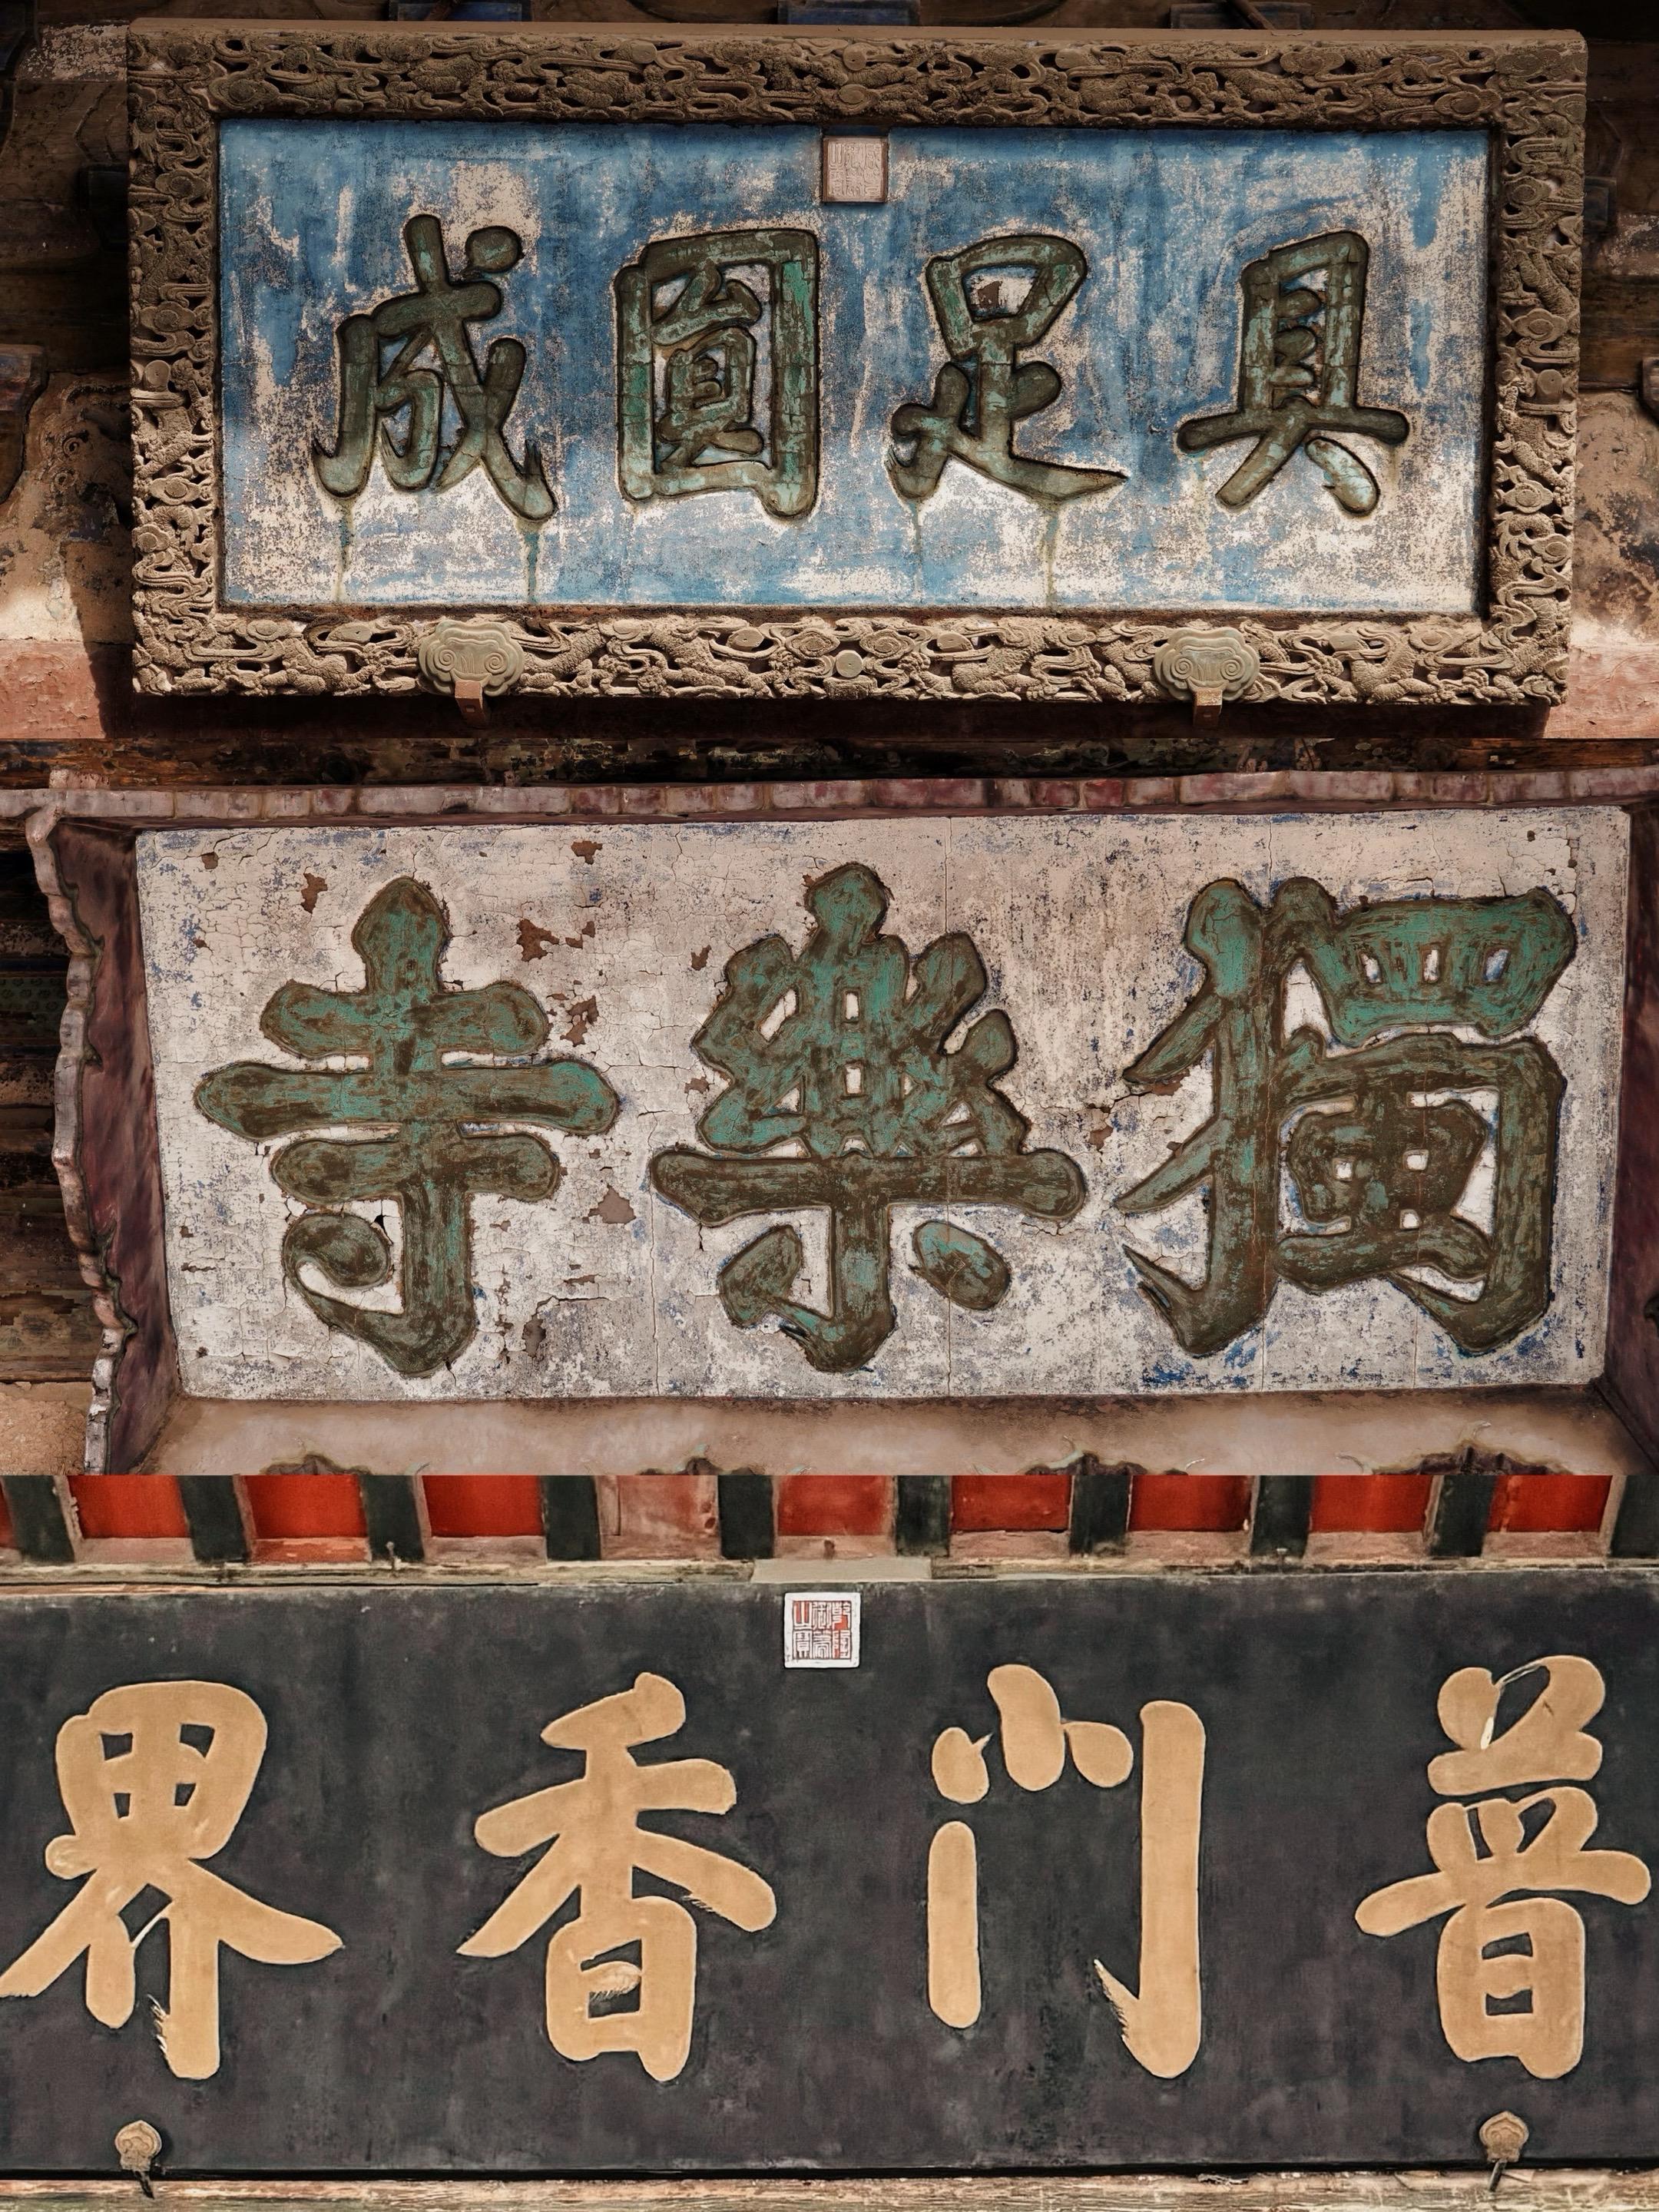 具足圓成
獨樂寺
普門香界